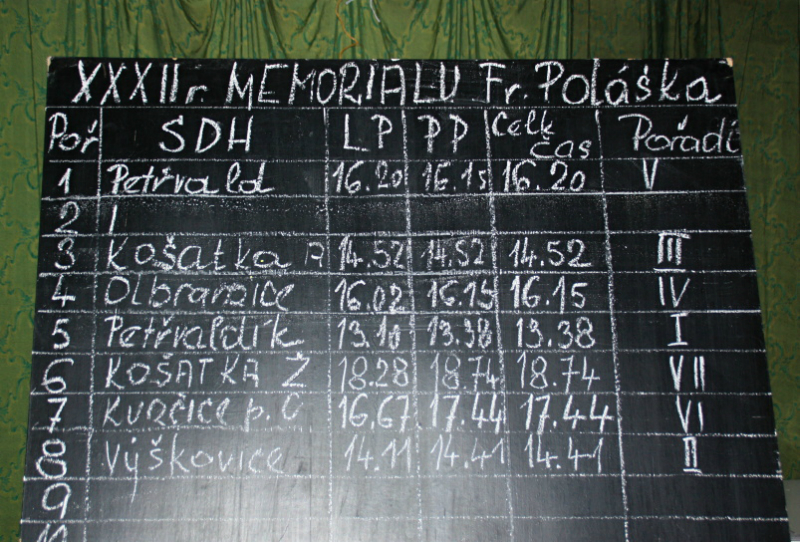 XXXII r. MEMORIALU Fr. Poláška
Poř SDH LP PP Celk čas Pořadí
1 Petřvald 16.20 16.15 16.20 V
2
3 Košatka A 14.52 14.52 14.52 III
4 Olbramice 16.02 16.15 16.15 IV
5 Petřvaldík 13.10 13.38 13.38 I
6 KOŠATKA Ž 18.28 18.74 18.74 VII
7 p. 16.67 17.44 17.44 VI
8 Výškovice 14.11 14.41 14.41 II
9
10